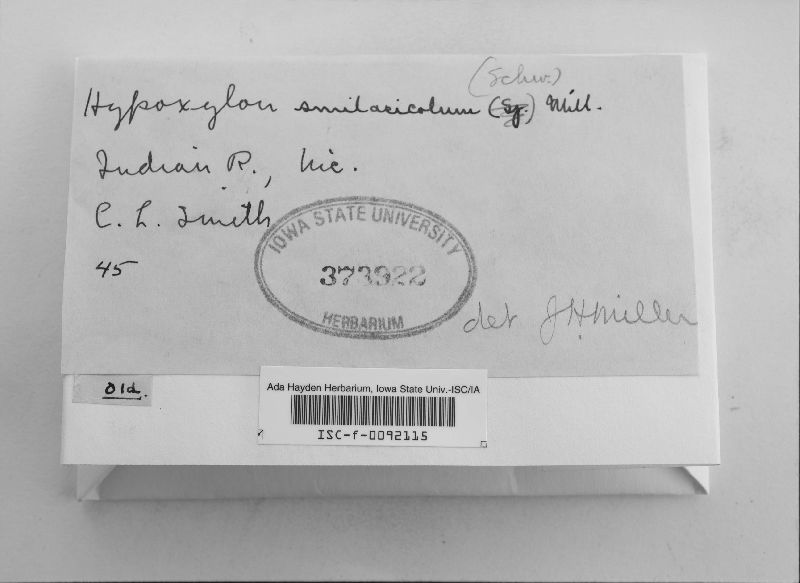 (Schw.)
Hypoxylon smilacicolum (Sz.) Mill.
Indian R., Nic.
C. L. Smith
45
IOWA STATE UNIVERSITY
373922
HERBARIUM
det JHMiller
Old.
Ada Hayden Herbarium, Iowa State Univ.-ISC/IA
ISC-f-0092115